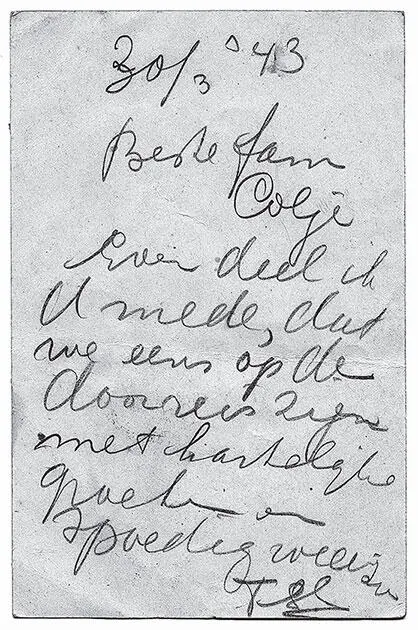 30/3 '43
Beste fam
Colje
Even deel ik
U mede, dat
we eens op de
doorreis zijn
met hartelijke
groeten en
spoedig weerzien